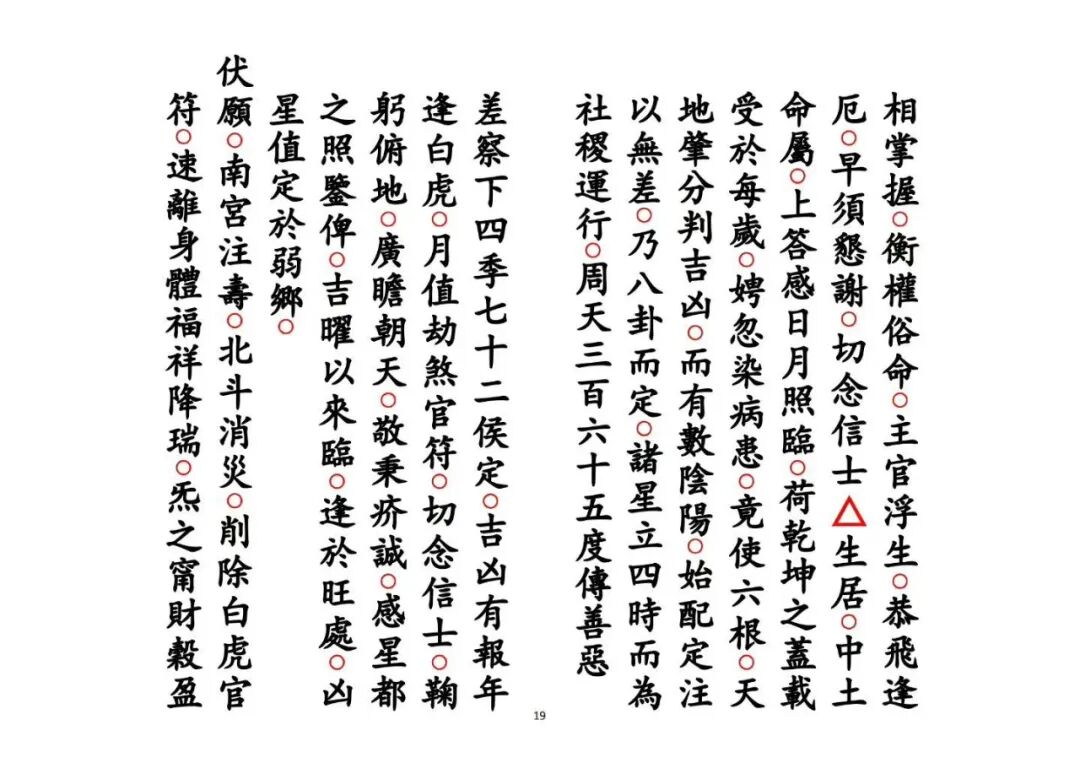 相掌握○衡權俗命○主官浮生○恭飛逢
厄○早須懇謝○切念信士△生居○中土
命屬○上答感日月照臨○荷乾坤之蓋載
受於每歲○娉忽染病患○竟使六根○天
地肇分判吉凶○而有數陰陽○始配定注
以無差○乃八卦而定○諸星立四時而為
社稷運行○周天三百六十五度傳善惡
差察下四季七十二侯定○吉凶有報年
逢白虎○月值劫煞官符○切念信士○鞠
躬俯地○廣瞻朝天○敬秉疥誠○感星都
之照鑒俾○吉曜以來臨○逢於旺處○凶
星值定於弱鄉○
伏願○南宮注壽○北斗消災○削除白虎官
符○速離身體福祥降瑞○炁之甯財穀盈
19